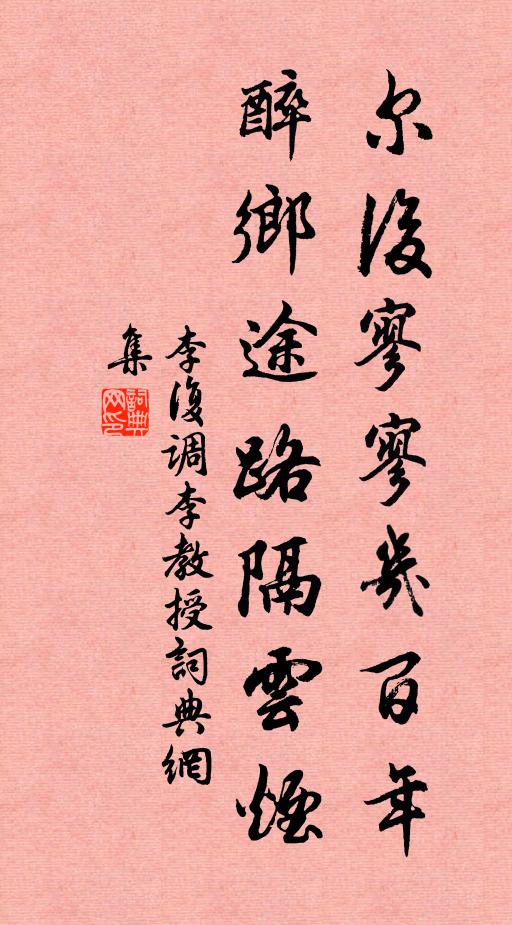 尔後寥寥幾百年
醉鄉途路隔雲煙
李復調李教授詞典網
集
詞典網印